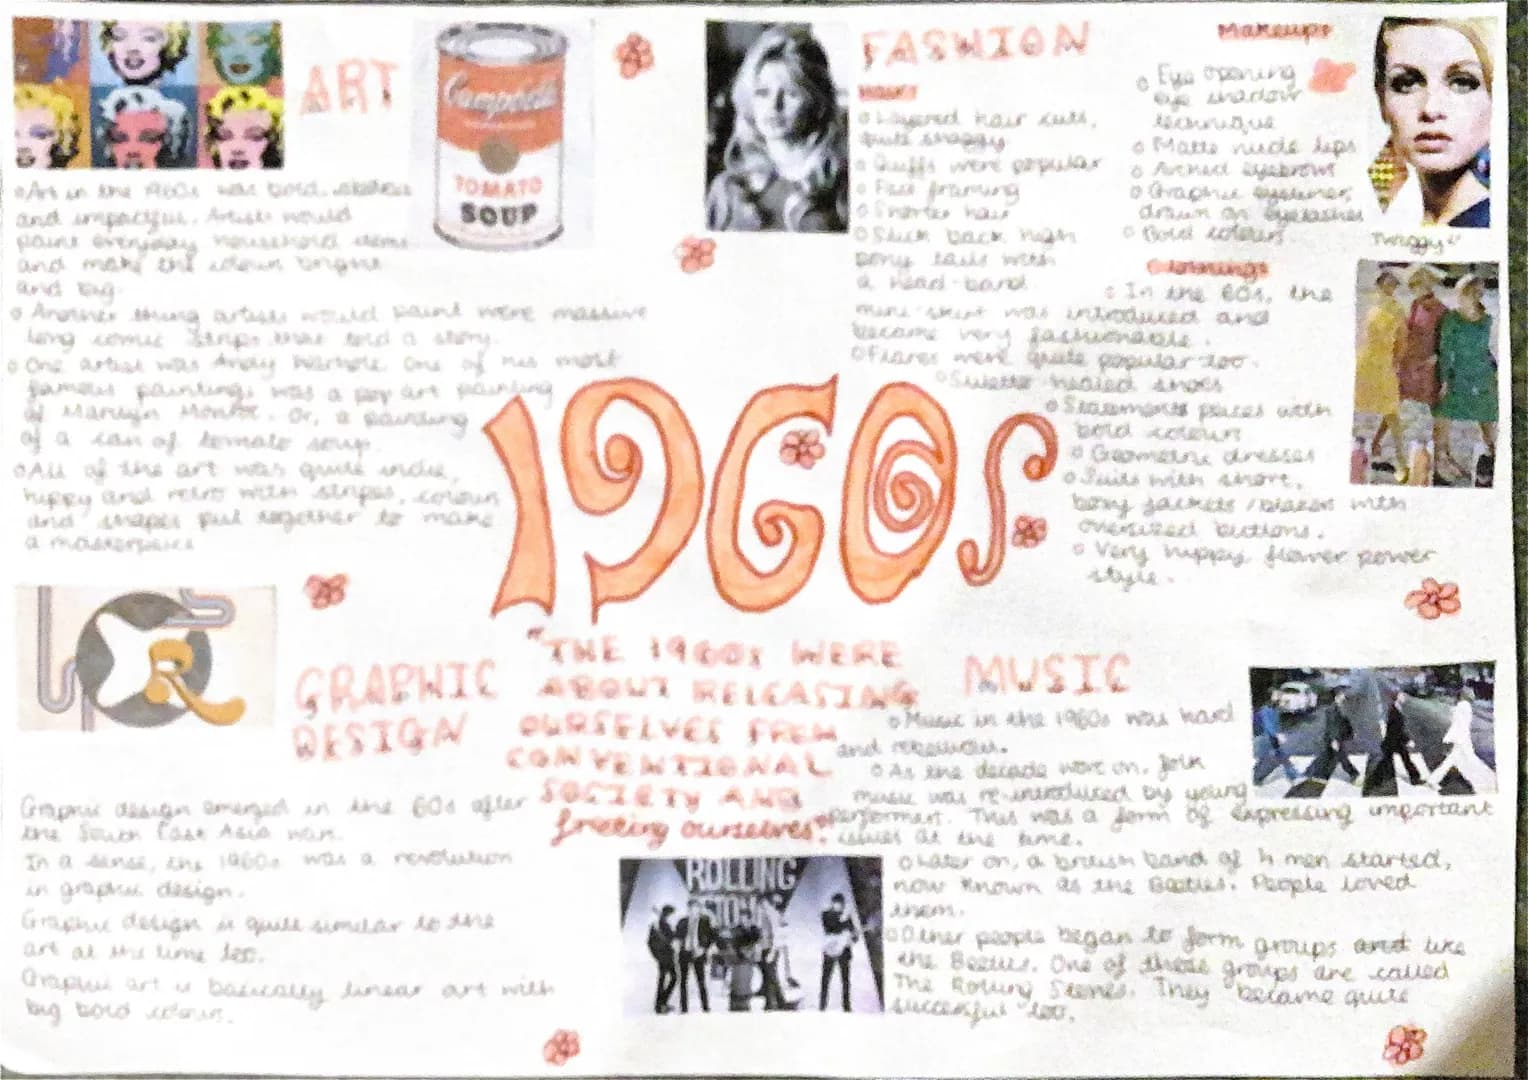 ART
Campbell's
TOMATO
SOUP
Art in the 1960s was bold,
and impactful. Artists would
paint everyday household items
and make the colours bright
and big.
Another thing artists would paint were massive
long comic strips that told a story.
One artist was Andy Warhole. One of his most
famous paintings was a pop art painting
of Marilyn Monroe. Or, a painting
of a can of tomato soup.
All of the art was quite indie,
hippy and retro with stripes, colours
and shapes put together to make
a masterpiece
FASHION
Hair
Layered hair cuts,
quite shaggy
Quiffs were popular
Face framing
Shorter hair
Slick back high
pony tails with
a head-band
Makeups
Eye opening
eye shadow
technique
Matte nude lips
Arched eyebrows
Graphic eyeliner,
drawn on eyelashes
Bold colours.
Twiggy
In the 60s, the
mini-skirt was introduced and
became very fashionable.
Flares were quite popular too.
healed shoes
Statements peices with
bold colours
Geometric dresses
Suits with short,
boxy jackets/blazers with
oversized buttons.
Very hippy, flower power
style.
1960s
"THE 1960s WERE
ABOUT RELEASING
OURSELVES FROM
CONVENTIONAL
SOCIETY AND
freeing ourselves"
GRAPHIC
DESIGN
Graphic design emerged in the 60s after
the South East Asia war.
In a sense, the 1960s was a revolution
in graphic design.
Graphic design is quite similar to the
art at the time too.
Graphic art is basically linear art with
big bold colours.
MUSIC
Music in the 1960s was hard
and rebellious.
As the decade went on, folk
music was re-introduced by young
performers. This was a form of expressing important
issues at the time.
Later on, a british band of 4 men started,
now known as the Beetles. People loved
them.
Other people began to form groups like
the Beetles. One of these groups are called
The Rolling Stones. They became quite
successful too.
ROLLING
STONES